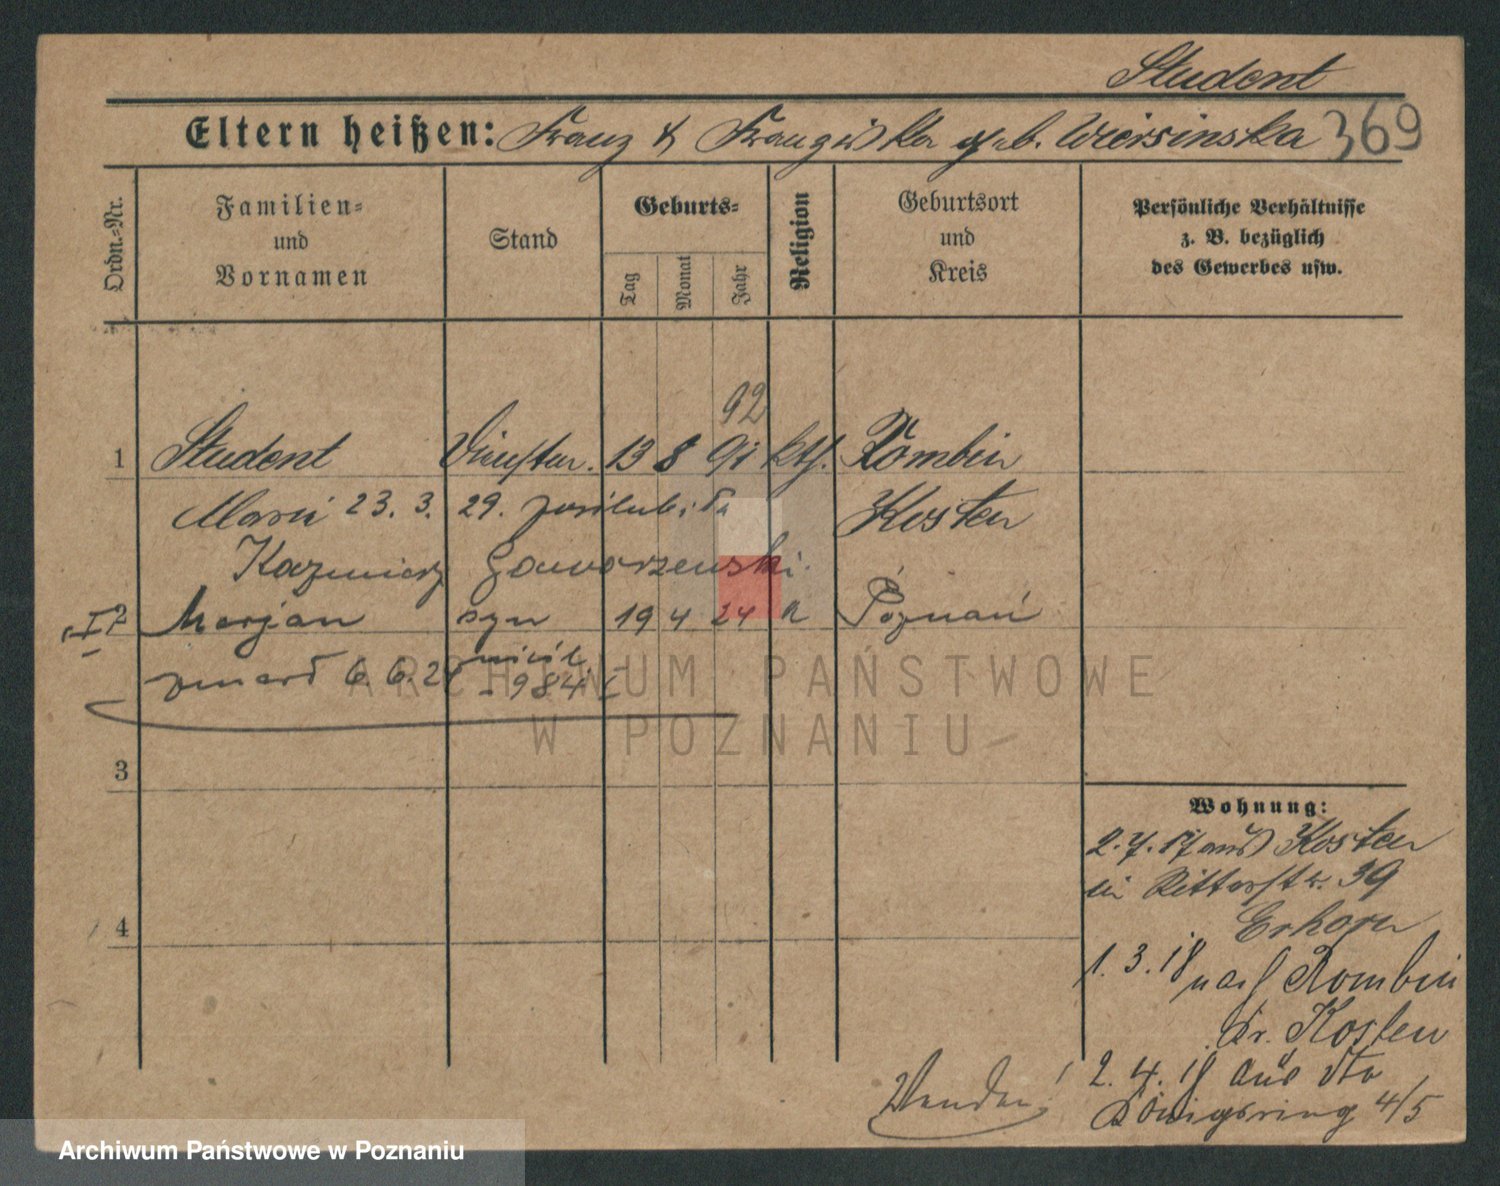 Student
Eltern heißen: Franz & Franziska geb. Wiersinska 369
Ordn.-Nr.
Familien-
und
Vornamen
Stand
Geburts-
Tag
Monat
Jahr
Religion
Geburtsort
und
Kreis
Persönliche Verhältnisse
z. B. bezüglich
des Gewerbes usw.
92
1 Student 13 8 91 kth. Rombin
23. 3. 29. poślubiła Kosten
Kazmierz Gaworzewski
2 Marjan syn 19 4 24 k Poznań
zmarł 6.6.24
984
3
4
Wohnung:
2.7.17 aus Kosten
in Ritterstr. 39
Erhorn
1.3.18 nach Rombin
Kr. Kosten
2.4.18 aus dto
Königsring 4/5
Wenden!
ARCHIWUM PAŃSTWOWE
W POZNANIU
Archiwum Państwowe w Poznaniu